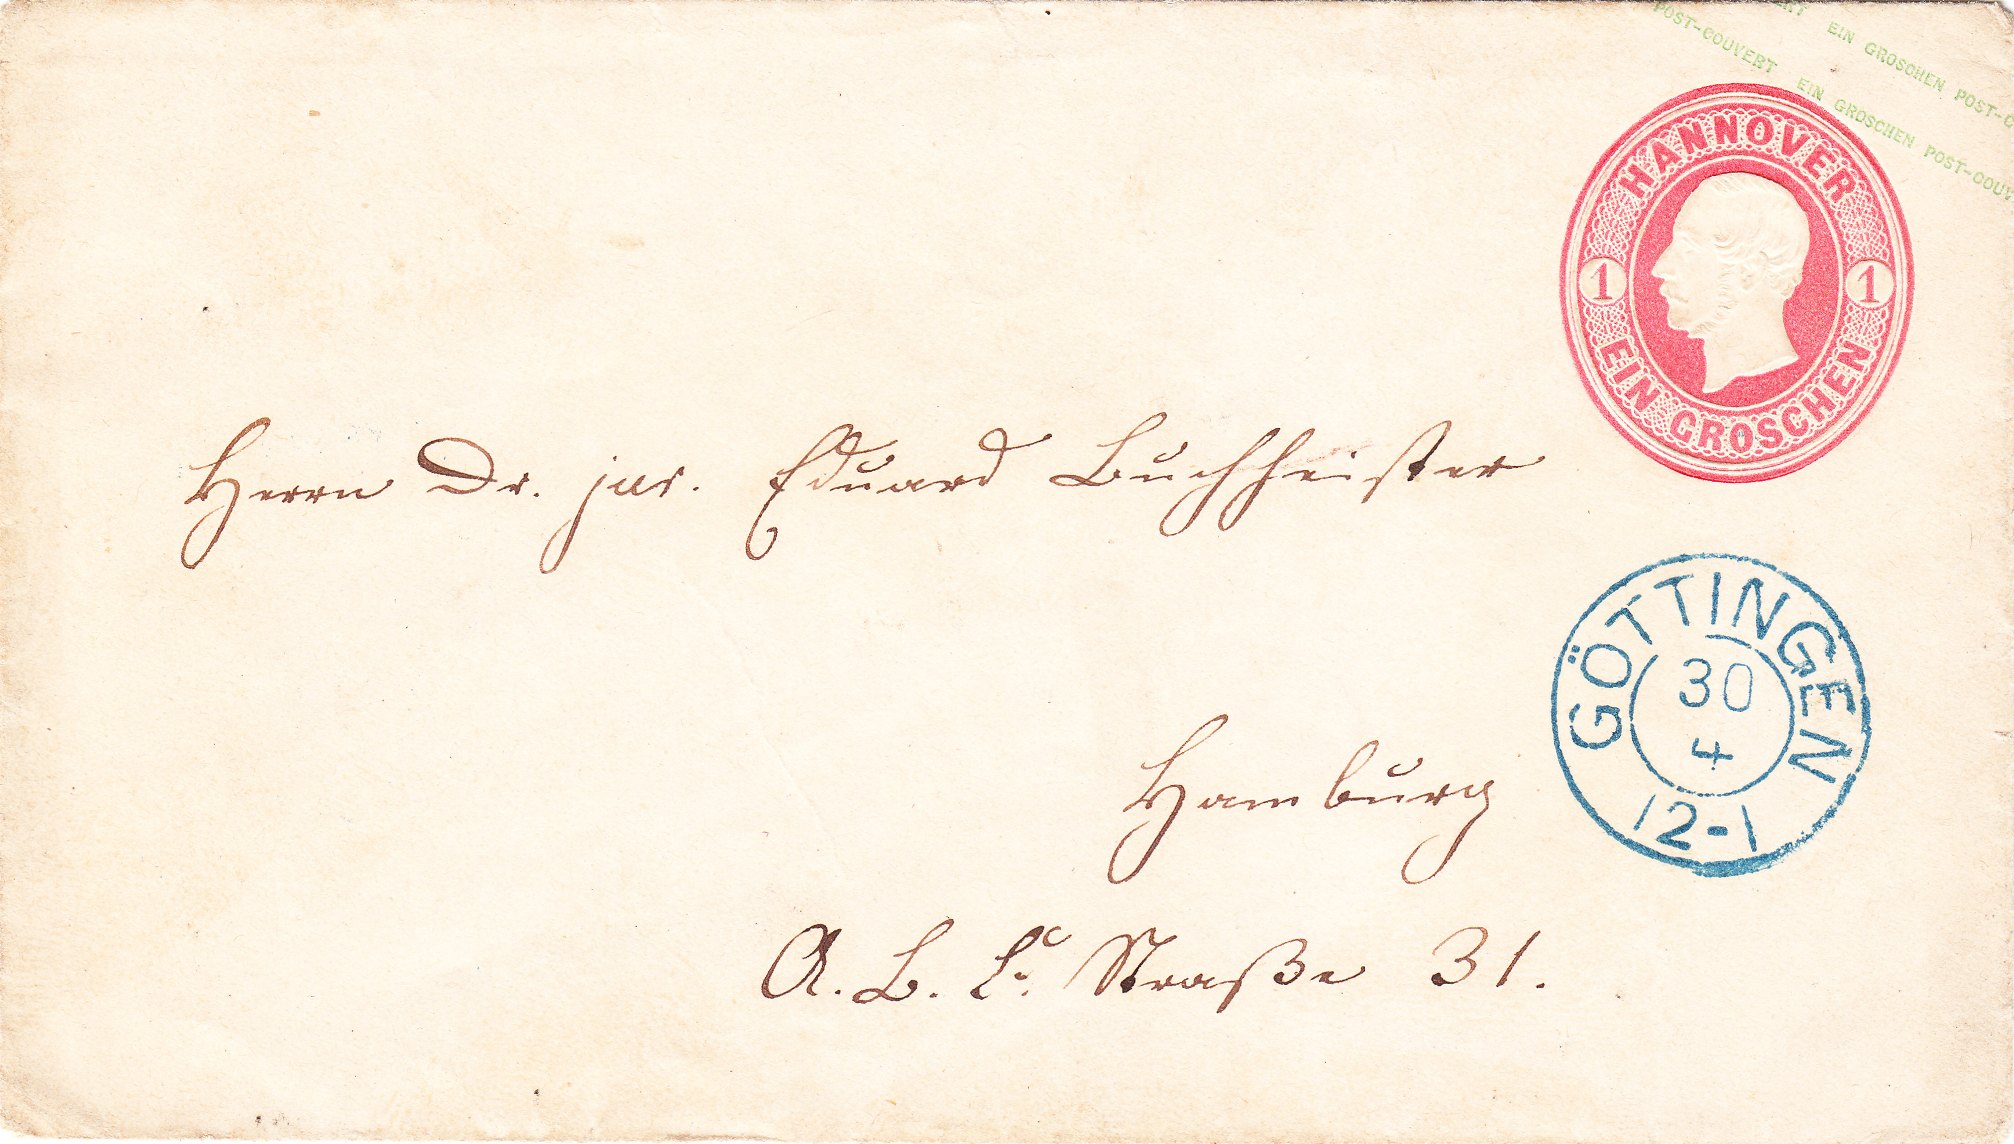 POST-COUVERT EIN GROSCHEN POST-COUV
ERT EIN GROSCHEN POST-C
HANNOVER
1 1
EIN GROSCHEN
Herrn Dr. jur. Eduard Buchheister
GÖTTINGEN
30
4
12-1
Hamburg
A. B. C. Straße 31.